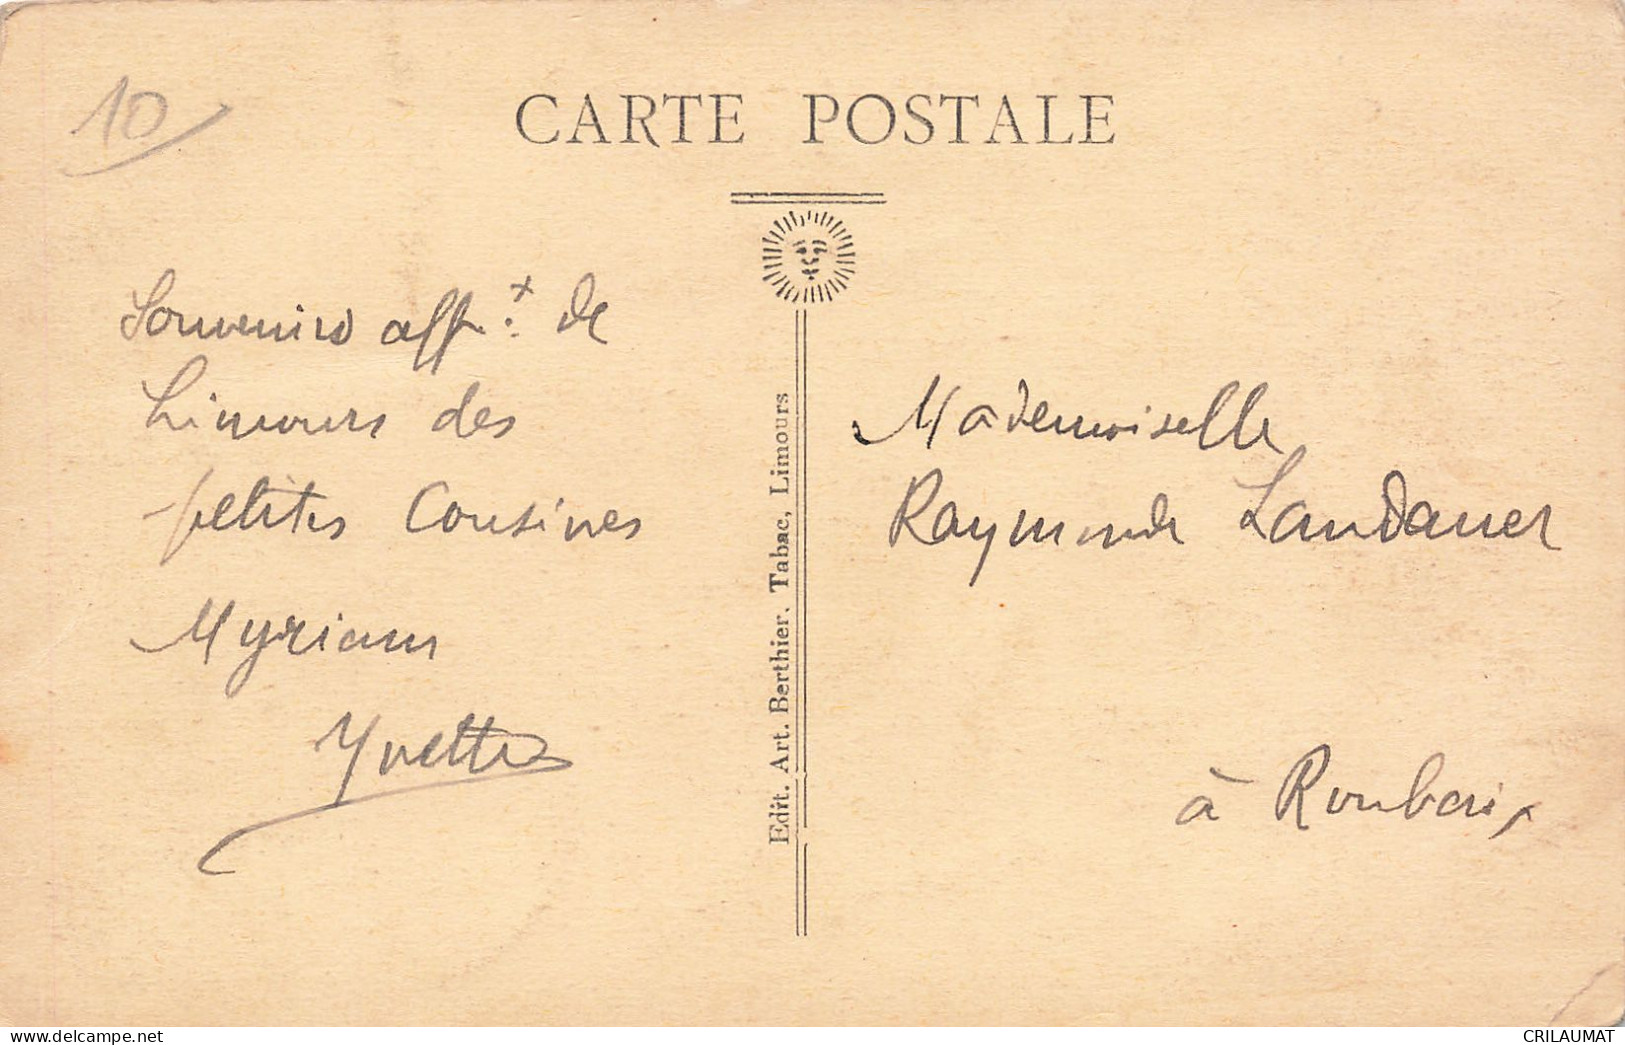 10
CARTE POSTALE
Souvenirs aff.x de
Limours des
petites Cousines
Myriam
Yvette
Edit. Art. Berthier. Tabac, Limours
Mademoiselle
Raymonde Landauer
à Roubaix
www.delcampe.net
CRILAUMAT